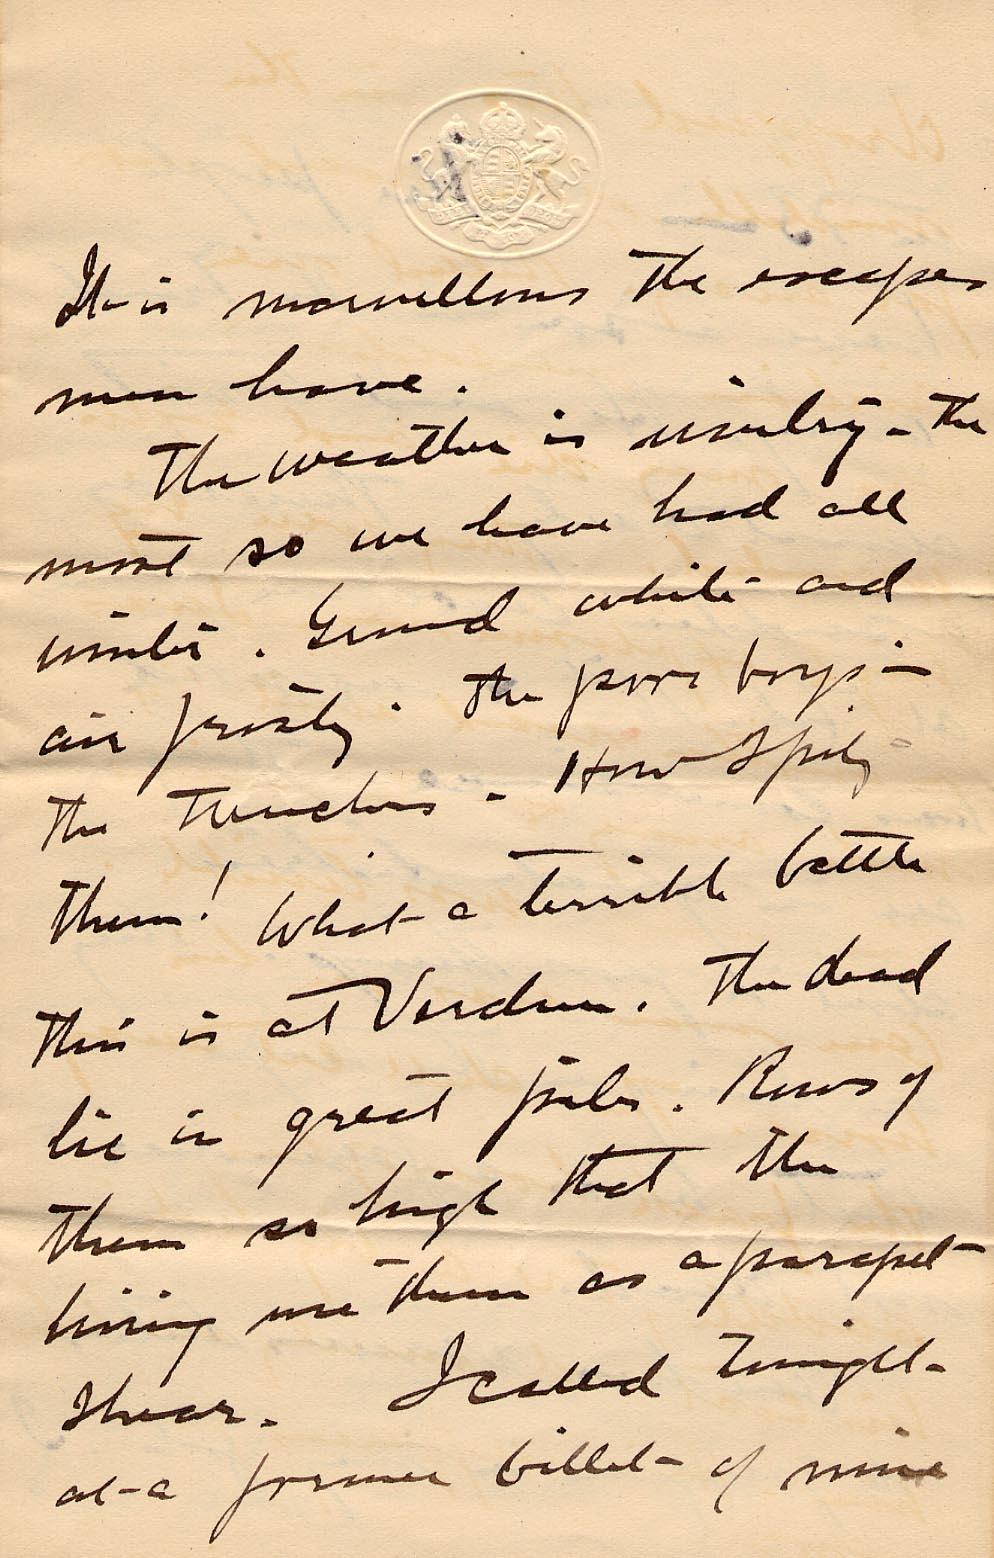 It is marvellous the escapes
men have.
The weather is wintry - the
most so we have had all
winter. Ground white and
air frosty. The poor boys in
the trenches - How I pity
them! What a terrible battle
this is at Verdun. The dead
lie in great piles. Rows of
them so high that the
living use them as a parapet
I hear. I called tonight
at a former billet of mine